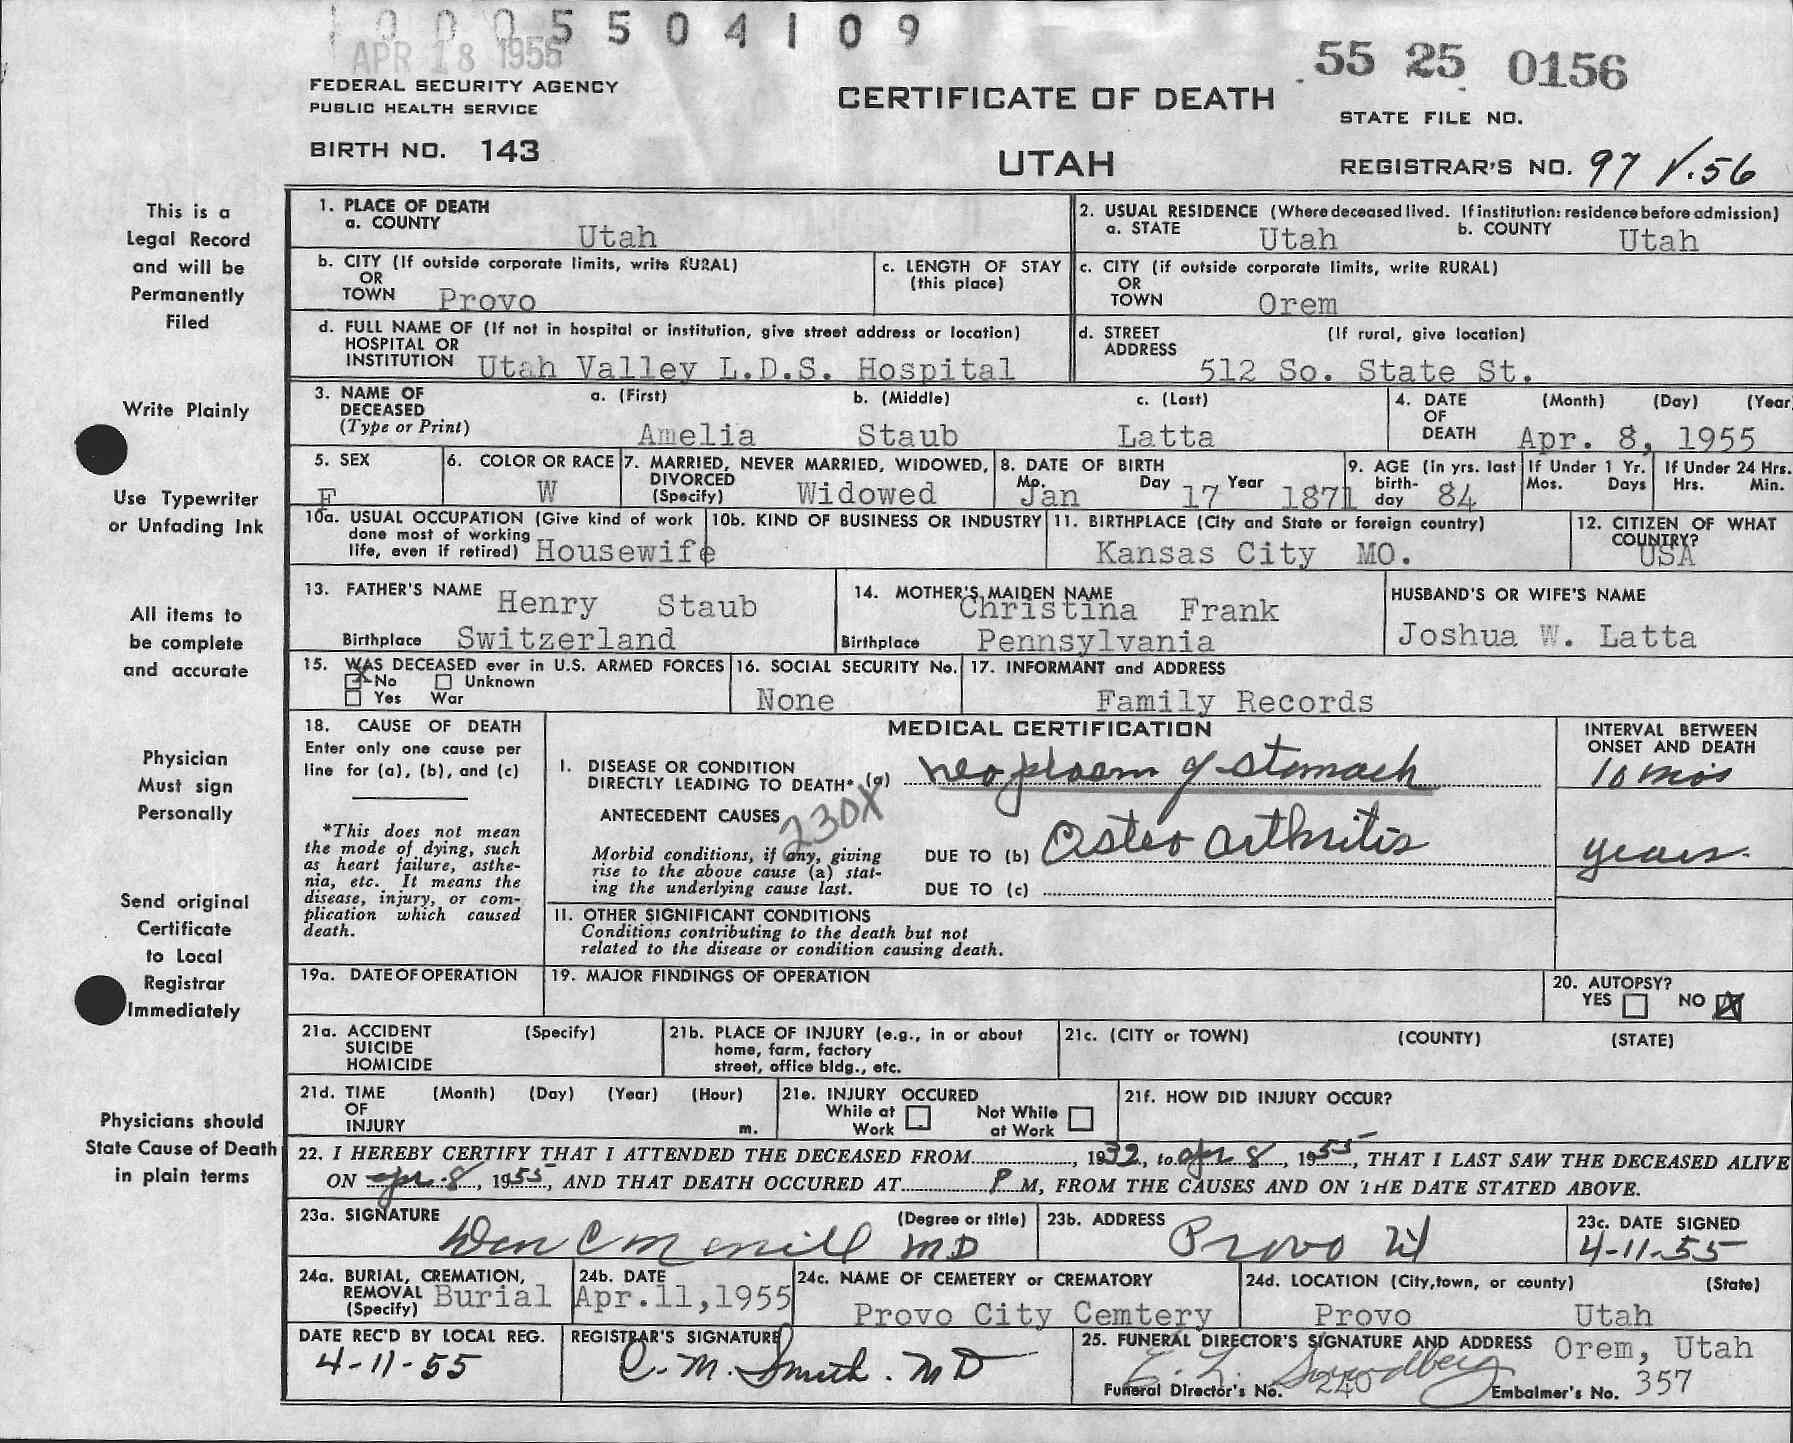 10005504109
APR 18 1955
55 25 0156
FEDERAL SECURITY AGENCY
PUBLIC HEALTH SERVICE
CERTIFICATE OF DEATH
STATE FILE NO.
BIRTH NO. 143
UTAH
REGISTRAR'S NO. 97 V.56
This is a
Legal Record
and will be
Permanently
Filed
Write Plainly
Use Typewriter
or Unfading Ink
All items to
be complete
and accurate
Physician
Must sign
Personally
Send original
Certificate
to Local
Registrar
Immediately
Physicians should
State Cause of Death
in plain terms
1. PLACE OF DEATH
a. COUNTY Utah
2. USUAL RESIDENCE (Where deceased lived. If institution: residence before admission)
a. STATE Utah b. COUNTY Utah
b. CITY (If outside corporate limits, write RURAL)
OR
TOWN Provo
c. LENGTH OF STAY
(this place)
c. CITY (if outside corporate limits, write RURAL)
OR
TOWN Orem
d. FULL NAME OF (If not in hospital or institution, give street address or location)
HOSPITAL OR
INSTITUTION Utah Valley L.D.S. Hospital
d. STREET (If rural, give location)
ADDRESS
512 So. State St.
3. NAME OF a. (First) b. (Middle) c. (Last)
DECEASED
(Type or Print) Amelia Staub Latta
4. DATE (Month) (Day) (Year
OF
DEATH Apr. 8, 1955
5. SEX
F
6. COLOR OR RACE
W
7. MARRIED, NEVER MARRIED, WIDOWED,
DIVORCED
(Specify) Widowed
8. DATE OF BIRTH
Mo. Day Year
Jan 17 1871
9. AGE (in yrs. last
birth-
day 84
If Under 1 Yr.
Mos. Days
If Under 24 Hrs.
Hrs. Min.
10a. USUAL OCCUPATION (Give kind of work
done most of working
life, even if retired) Housewife
10b. KIND OF BUSINESS OR INDUSTRY
11. BIRTHPLACE (City and State or foreign country)
Kansas City MO.
12. CITIZEN OF WHAT
COUNTRY?
USA
13. FATHER'S NAME Henry Staub
Birthplace Switzerland
14. MOTHER'S MAIDEN NAME
Christina Frank
Birthplace Pennsylvania
HUSBAND'S OR WIFE'S NAME
Joshua W. Latta
15. WAS DECEASED ever in U.S. ARMED FORCES
x No Unknown
Yes War
16. SOCIAL SECURITY No.
None
17. INFORMANT and ADDRESS
Family Records
18. CAUSE OF DEATH
Enter only one cause per
line for (a), (b), and (c)
*This does not mean
the mode of dying, such
as heart failure, asthe-
nia, etc. It means the
disease, injury, or com-
plication which caused
death.
MEDICAL CERTIFICATION
INTERVAL BETWEEN
ONSET AND DEATH
I. DISEASE OR CONDITION
DIRECTLY LEADING TO DEATH* (a) neoplasm of stomach 10 mo's
ANTECEDENT CAUSES 230X
Morbid conditions, if any, giving
rise to the above cause (a) stat-
ing the underlying cause last.
DUE TO (b) Osteo arthritis years
DUE TO (c)
II. OTHER SIGNIFICANT CONDITIONS
Conditions contributing to the death but not
related to the disease or condition causing death.
19a. DATE OF OPERATION
19. MAJOR FINDINGS OF OPERATION
20. AUTOPSY?
YES NO X
21a. ACCIDENT (Specify)
SUICIDE
HOMICIDE
21b. PLACE OF INJURY (e.g., in or about
home, farm, factory
street, office bldg., etc.
21c. (CITY or TOWN) (COUNTY) (STATE)
21d. TIME (Month) (Day) (Year) (Hour)
OF
INJURY m.
21e. INJURY OCCURED
While at Not While
Work at Work
21f. HOW DID INJURY OCCUR?
22. I HEREBY CERTIFY THAT I ATTENDED THE DECEASED FROM , 1932, to Apr 8, 1955, THAT I LAST SAW THE DECEASED ALIVE
ON Apr. 8, 1955, AND THAT DEATH OCCURED AT P M, FROM THE CAUSES AND ON THE DATE STATED ABOVE.
23a. SIGNATURE (Degree or title)
Don C Merrill MD
23b. ADDRESS
Provo Ut
23c. DATE SIGNED
4-11-55
24a. BURIAL, CREMATION,
REMOVAL
(Specify) Burial
24b. DATE
Apr.11,1955
24c. NAME OF CEMETERY or CREMATORY
Provo City Cemtery
24d. LOCATION (City,town, or county) (State)
Provo Utah
DATE REC'D BY LOCAL REG.
4-11-55
REGISTRAR'S SIGNATURE
C. M. Smith. MD
25. FUNERAL DIRECTOR'S SIGNATURE AND ADDRESS Orem, Utah
E. L.
Funeral Director's No. 240 Embalmer's No. 357